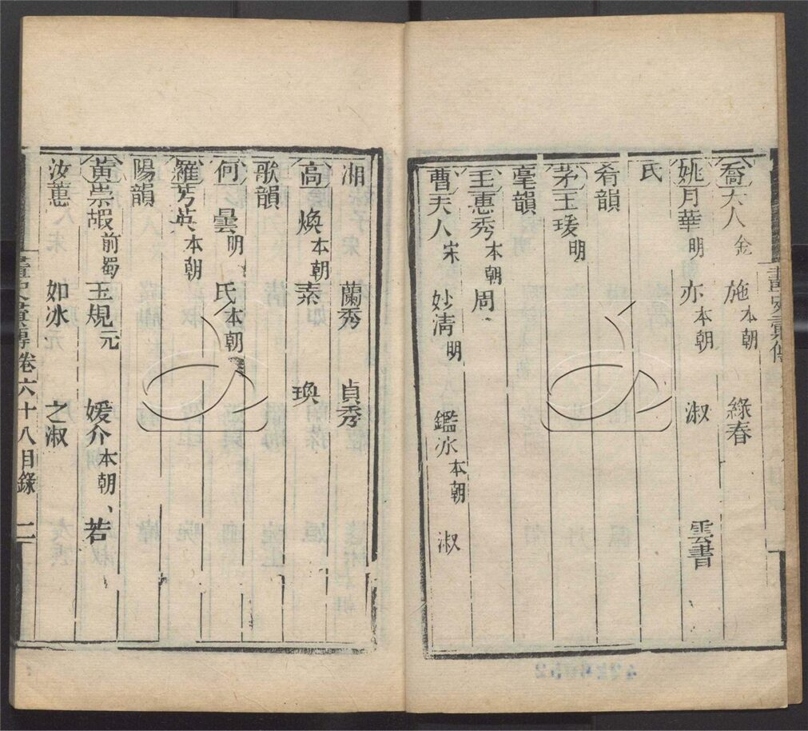 喬夫人金 施本朝 綠春
姚月華明 亦本朝 淑 雲書
氏
肴韻
茅玉瑗明
豪韻
王惠秀本朝 周
曹夫人宋 妙淸明 鑑冰本朝 淑
湘 蘭秀 貞秀
高煥本朝 素 瑛
歌韻
何曇明 氏本朝
羅芳英本朝
陽韻
黃崇嘏前蜀 王規元 媛介本朝 若
汝蕙 如冰 之淑
畫史彙傳卷六十八目錄 二